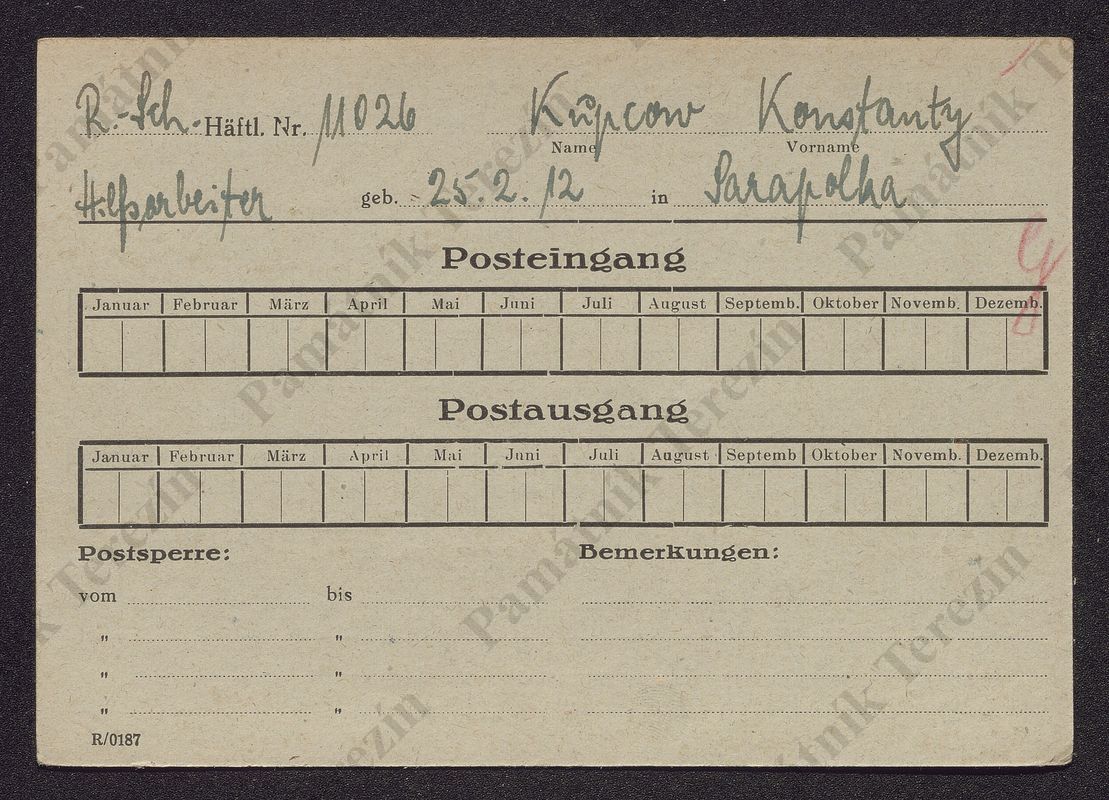 R.-Sch. Häftl. Nr. 11026 Kupcow Konstanty
Name Vorname
Hilfsarbeiter geb. 25.2.12 in Sarapolka
Posteingang
Januar Februar März April Mai Juni Juli August Septemb. Oktober Novemb. Dezemb.
Postausgang
Januar Februar März April Mai Juni Juli August Septemb Oktober Novemb. Dezemb.
Postsperre: Bemerkungen:
vom bis
" "
" "
" "
R/0187
Památník Terezín